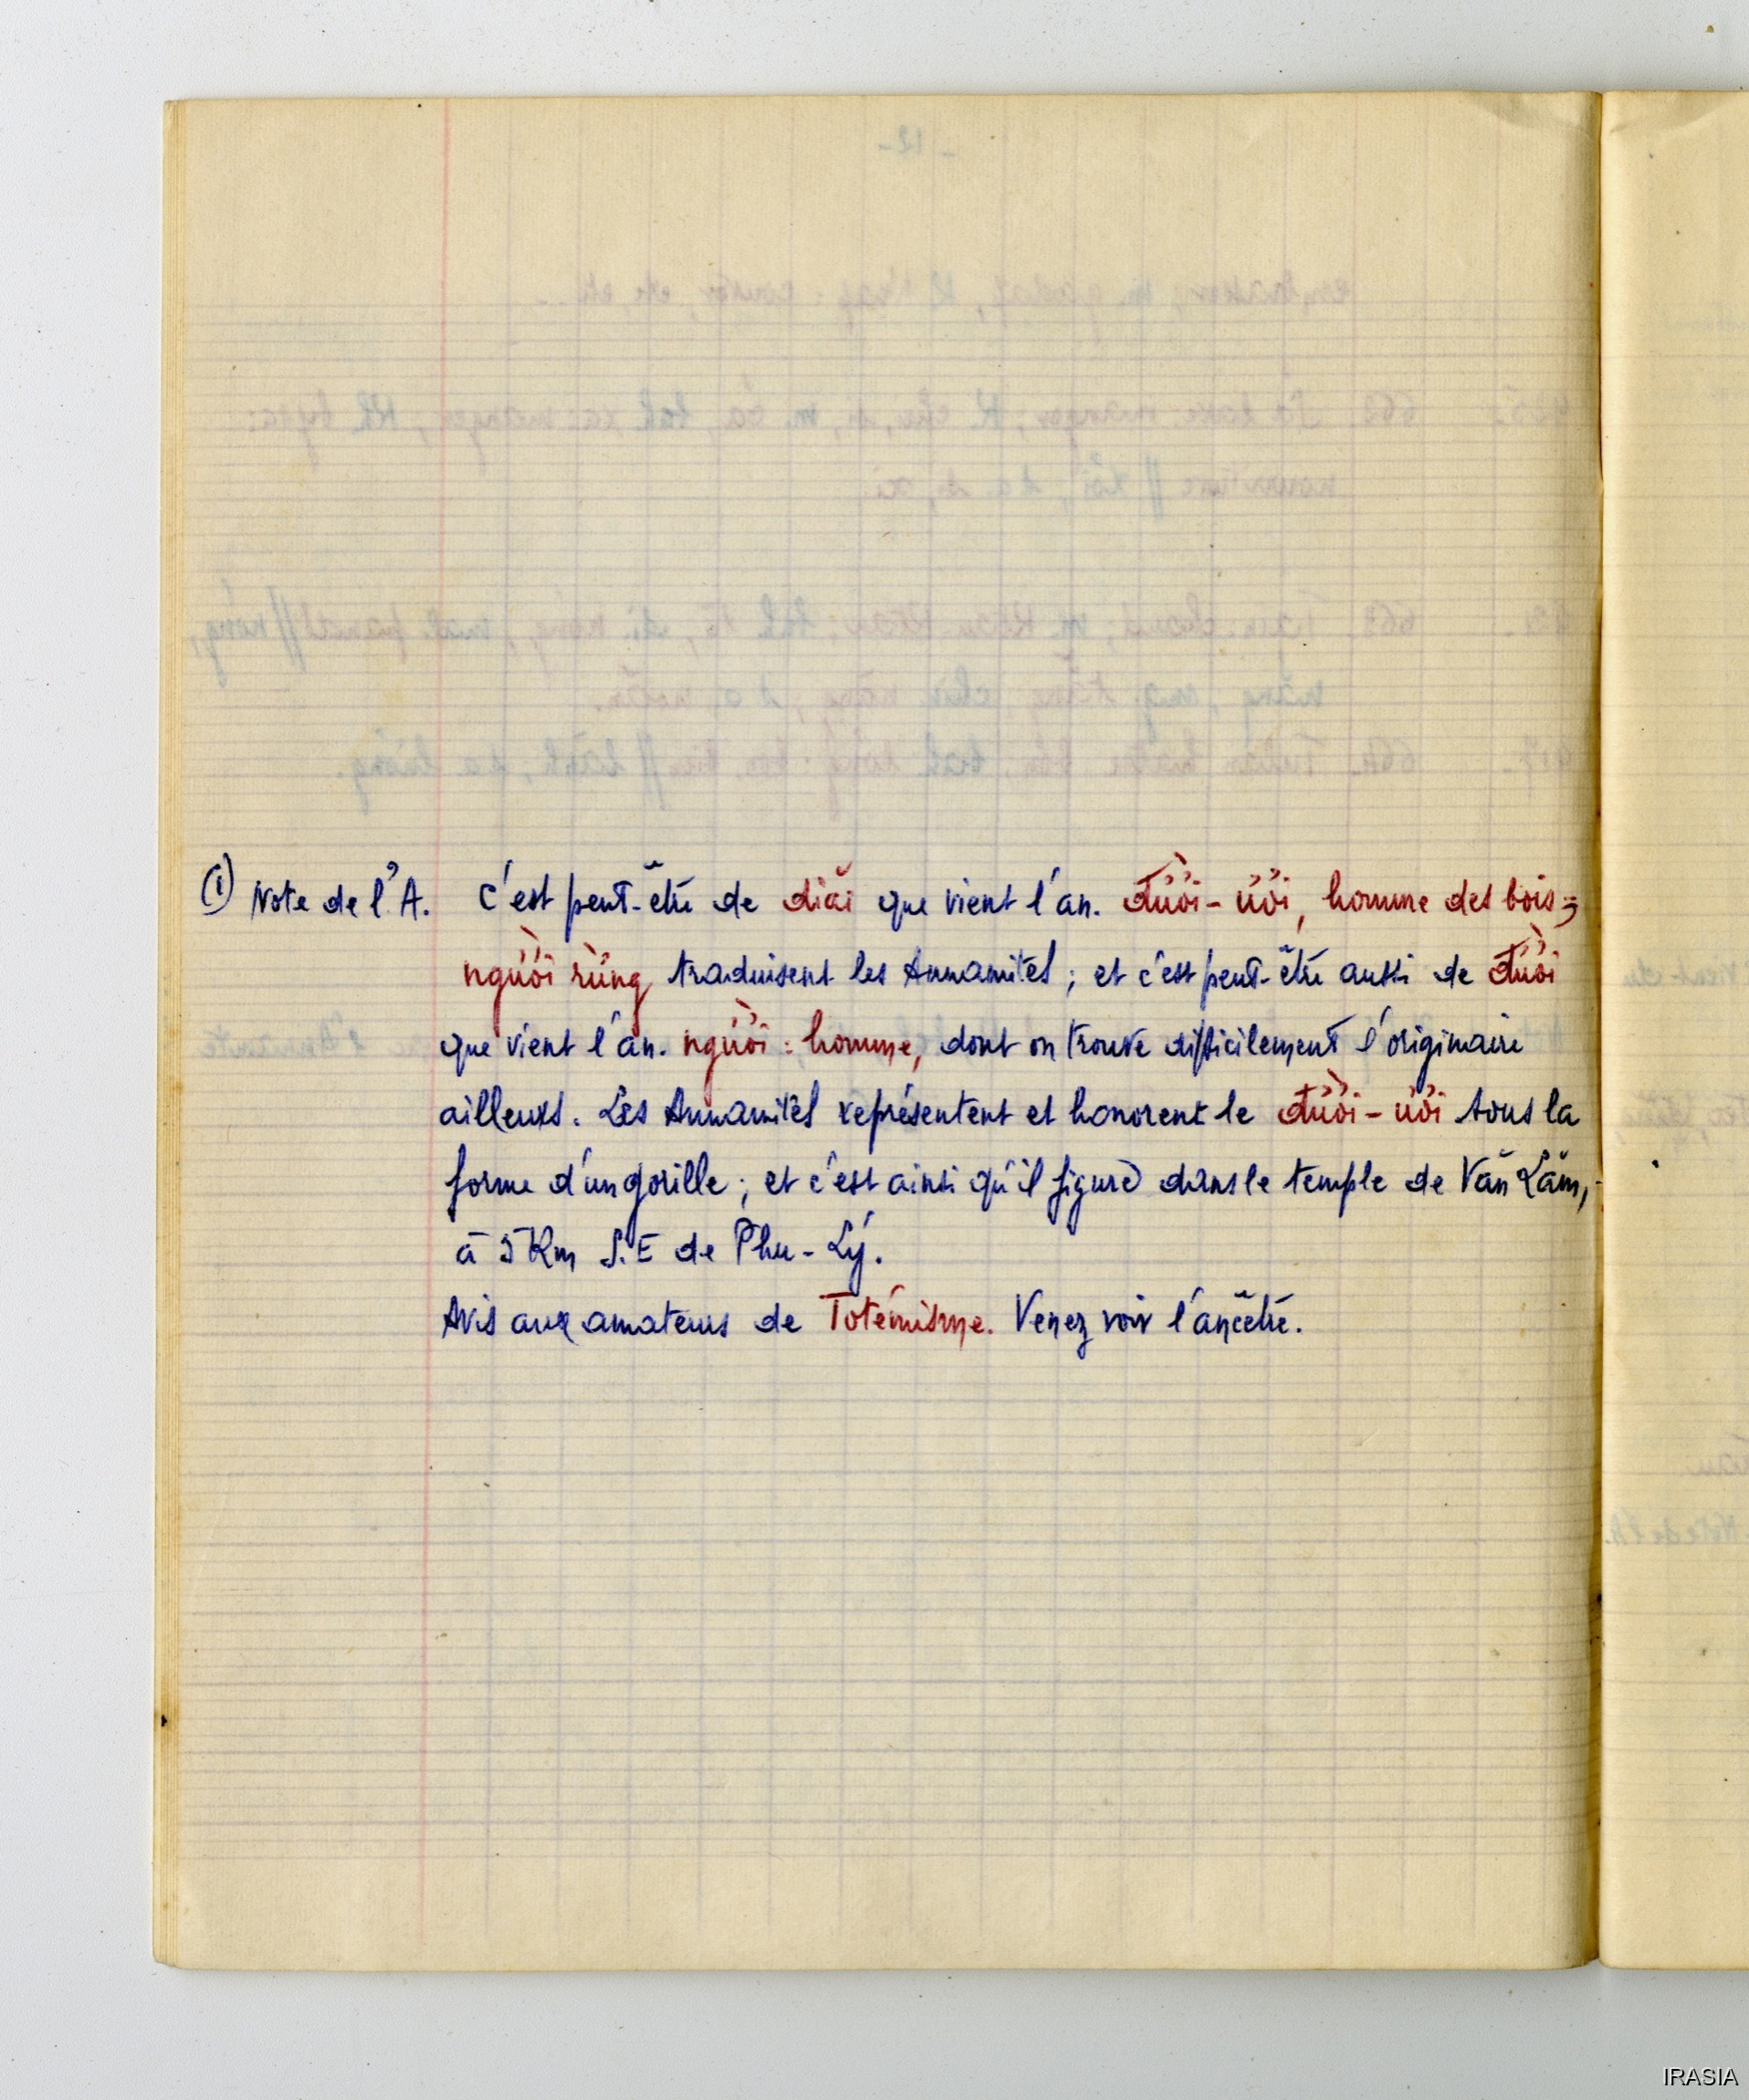 (1) Note de l'A. C'est peut-être de diăi que vient l'an. đười-ươi, homme des bois;
người rừng traduisent les Annamites; et c'est peut-être aussi de đười
que vient l'an. người: homme, dont on trouve difficilement l'originaire
ailleurs. Les Annamites représentent et honorent le đười-ươi sous la
forme d'un gorille; et c'est ainsi qu'il figure dans le temple de Văn Lâm,
à 5 Km S.E de Phu-Lý.
Avis aux amateurs de Totémisme. Venez voir l'ancêtre.
IRASIA